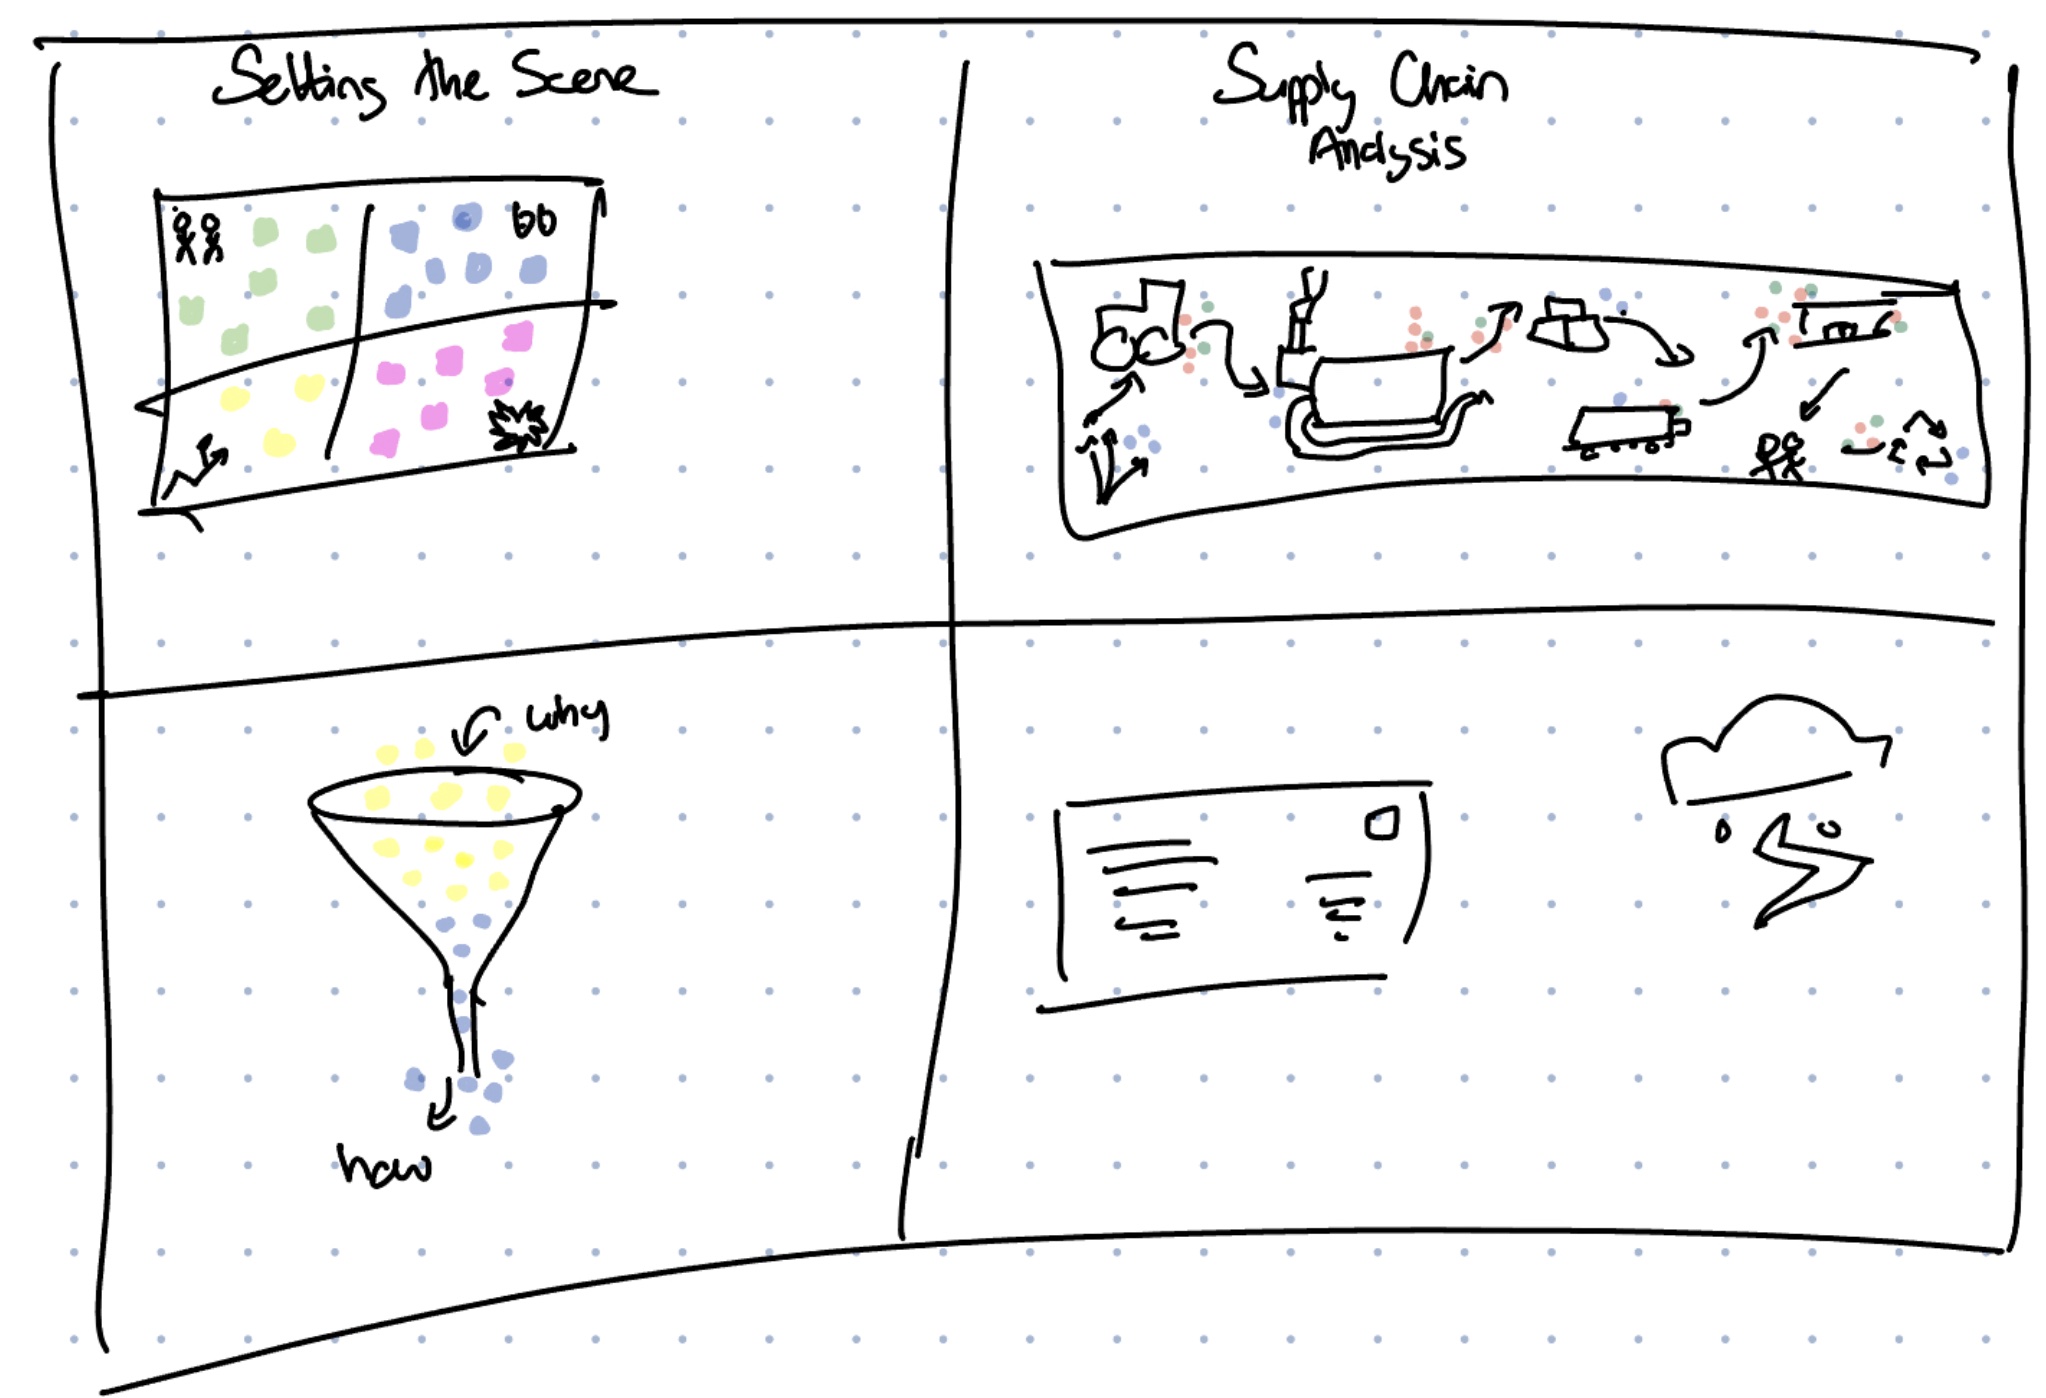 Setting the Scene
Supply Chain
Analysis
why
how